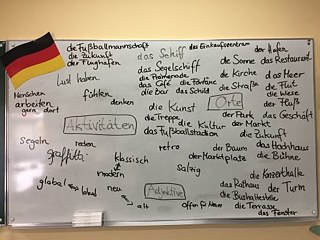 die Fußballmannschaft
die Zukunft
der Flughafen
Lust haben
Menschen
arbeiten
gern
dort
fühlen
denken
das Schiff
das Segelschiff
die Promenade
das Café
die Fontäne
die Bar
das Schild
das Einkaufszentrum
der Hafen
die Sonne
das Restaurant
die Kirche
das Meer
die Straße
die Flut
die Wiese
der Fluß
Orte
die Kunst
die Treppe
die Kultur
das Fußballstadion
der Park
das Geschäft
der Markt
die Zukunft
Aktivitäten
Segeln
reden
graffiti
retro
der Baum
das Hochhaus
der Marktplatz
die Bühne
klassisch
modern
salzig
die Konzerthalle
global
lokal
neu
alt
Adjektive
das Rathaus
der Turm
die Bushaltestelle
die Terrasse
das Fenster